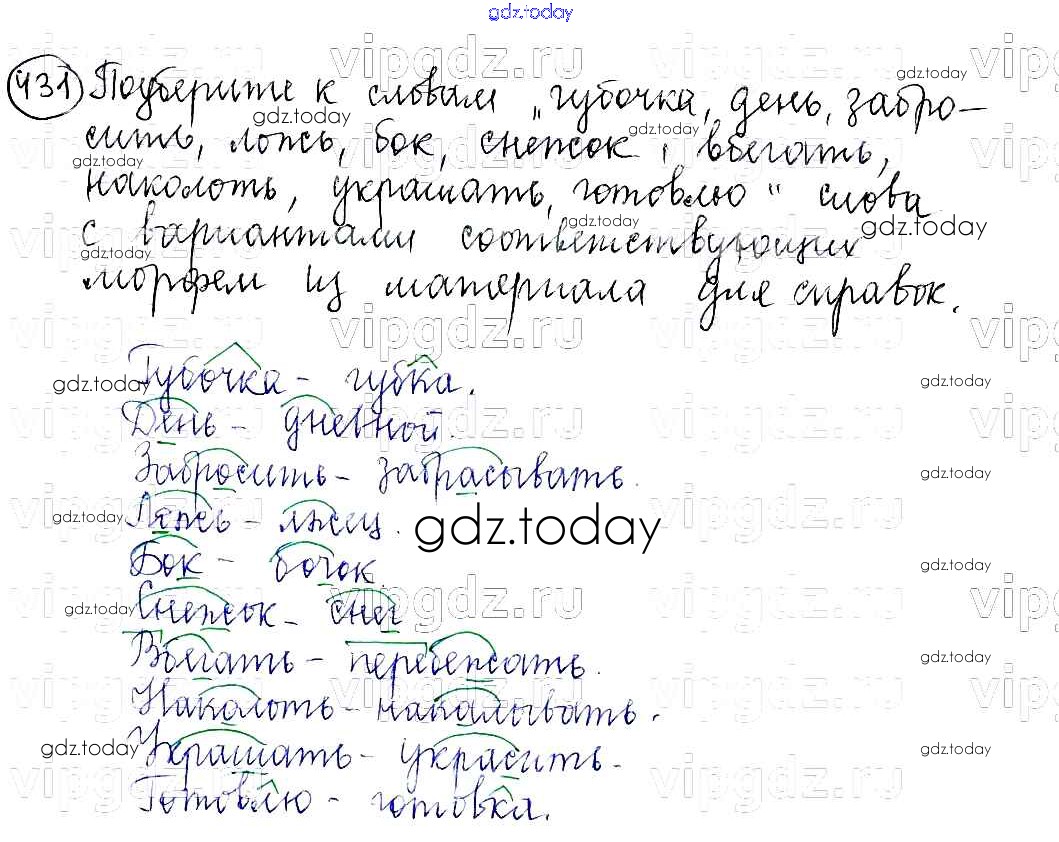 gdz.today
431 Подберите к словам „губочка, день, забро-
сить, ложь, бок, снежок, вбегать,
наколоть, украшать, готовлю" слова
с вариантами соответствующих
морфем из материала для справок.
Губочка - губка.
День - дневной.
Забросить - забрасывать.
Ложь - лжец.
Бок - бочок.
Снежок - снег
Вбегать - перебежать.
Наколоть - накалывать.
Украшать - украсить.
Готовлю - готовка.